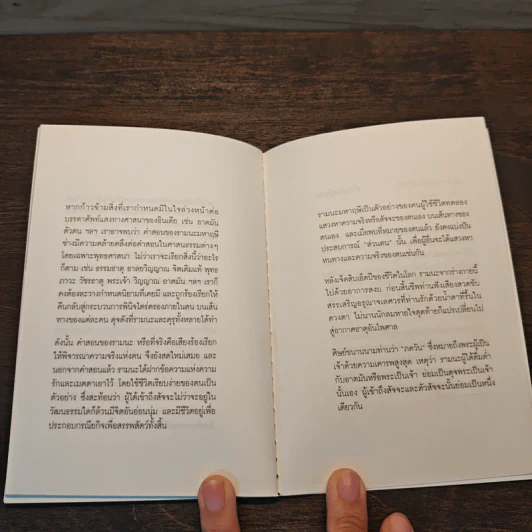 หากก้าวข้ามสิ่งที่เรากำหนดมีในใจล่วงหน้าต่อ
บรรดาศัพท์แสงทางศาสนาของอินเดีย เช่น อาตมัน
ตัวตน ฯลฯ เราอาจพบว่า คำสอนของรามณะมหาฤษี
ช่างมีความคล้ายคลึงต่อคำสอนในศาสนธรรมต่างๆ
โดยเฉพาะพุทธศาสนา ไม่ว่าเราจะเรียกสิ่งนี้ว่าอะไร
ก็ตาม เช่น ธรรมธาตุ อาลยวิญญาณ จิตเดิมแท้ พุทธ
ภาวะ วัชรธาตุ พระเจ้า วิญญาณ อาตมัน ฯลฯ เราก็
คงต้องละวางกำหนดนิยามที่เคยมี และถูกร้องเรียกให้
คืนกลับสู่กระบวนการพินิจใคร่ครองภายในตน บนเส้น
ทางของแต่ละคน ดุจดังที่รามณะและคุรุทั้งหลายได้ทำ
ดังนั้น คำสอนของรามณะ หรือที่จริงคือเสียงร้องเรียก
ให้พิจารณาความจริงแห่งตน จึงยังสดใหม่เสมอ และ
นอกจากคำสอนแล้ว รามณะได้ฝากข้อความแห่งความ
รักและเมตตาเอาไว้ โดยใช้ชีวิตเรียบง่ายของตนเป็น
ตัวอย่าง ซึ่งสะท้อนว่า ผู้ได้เข้าถึงสัจจะไม่ว่าจะอยู่ใน
วัฒนธรรมใดก็ล้วนมีจิตอันอ่อนนุ่ม และมีชีวิตอยู่เพื่อ
ประกอบกรณียกิจเพื่อสรรพสัตว์ทั้งสิ้น
รามณะมหาฤษีเป็นตัวอย่างของคนผู้ใช้ชีวิตทดลอง
แสวงหาความจริงหรือสัจจะของตนเอง บนเส้นทางของ
ตนเอง และเมื่อพบที่หมายของตนแล้ว ยังคงแบ่งปัน
ประสบการณ์ "ส่วนตน" นั้น เพื่อผู้อื่นจะได้แสวงหา
หนทางและความจริงของตนเช่นกัน
หลังเจ็ดสิบเอ็ดปีของชีวิตในโลก รามณะจากร่างกายนี้
ไปด้วยอาการสงบ ก่อนสิ้นชีพท่านฟังเสียงสวดขับ
สรรเสริญอรุณาจเลศวรที่ท่านรักด้วยน้ำตาที่รื้นใน
ดวงตา ไม่นานนักลมหายใจสุดท้ายก็แปรเปลี่ยนไป
สู่อากาศธาตุอันไพศาล
ศิษย์ขนานนามท่านว่า "ภควัน" ซึ่งหมายถึงพระผู้เป็น
เจ้าด้วยความเคารพสูงสุด เหตุว่า รามณะผู้ได้ดื่มด่ำ
กับอาตมันหรือพระเป็นเจ้า ย่อมเป็นดุจพระเป็นเจ้า
นั้นเอง ผู้เข้าถึงสัจจะและตัวสัจจะนั้นย่อมเป็นหนึ่ง
เดียวกัน